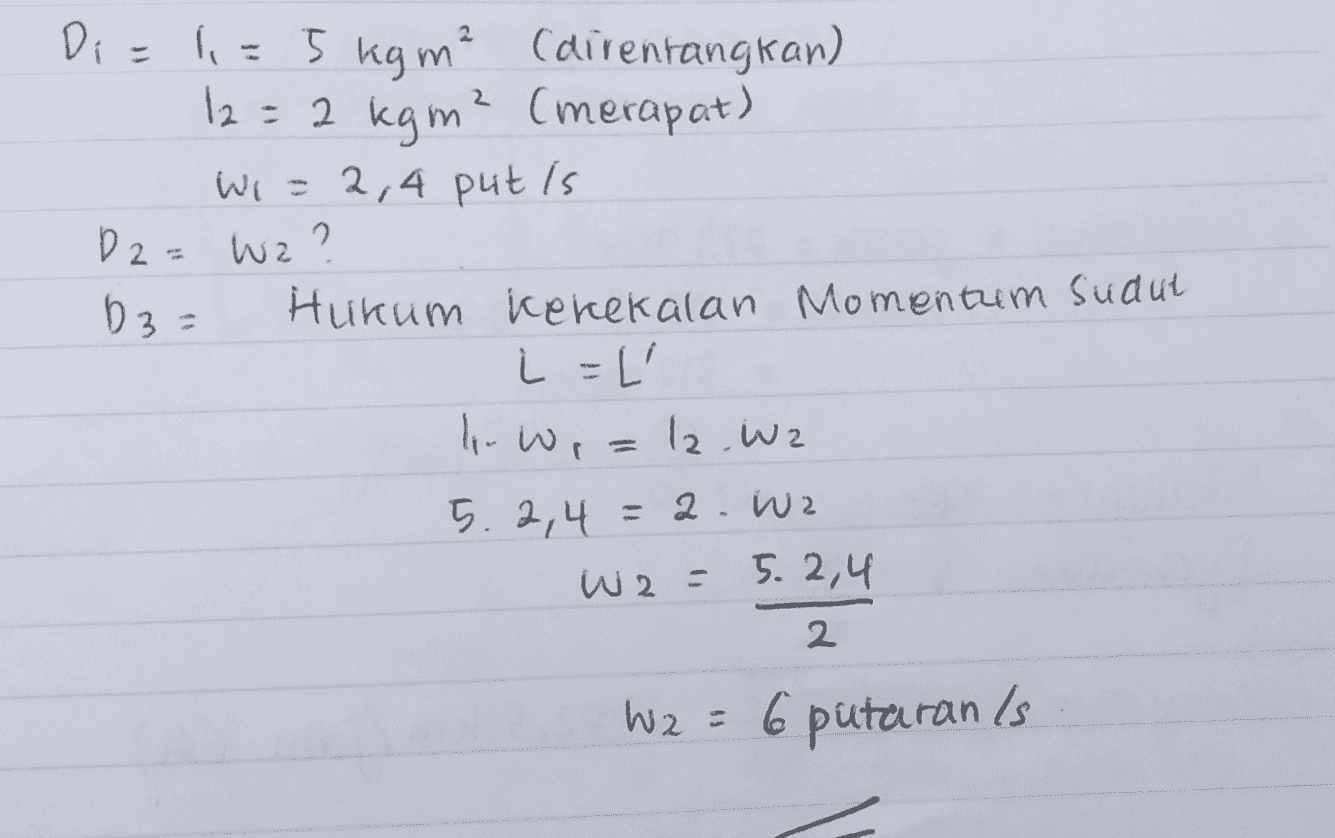 D1 = I1 = 5 kgm² (direntangkan)
I2 = 2 kgm² (merapat)
W1 = 2,4 put/s
D2 = W2?
D3 = Hukum kekekalan Momentum Sudut
L = L'
I1. W1 = I2. W2
5. 2,4 = 2. W2
W2 = 5. 2,4
2
W2 = 6 putaran/s